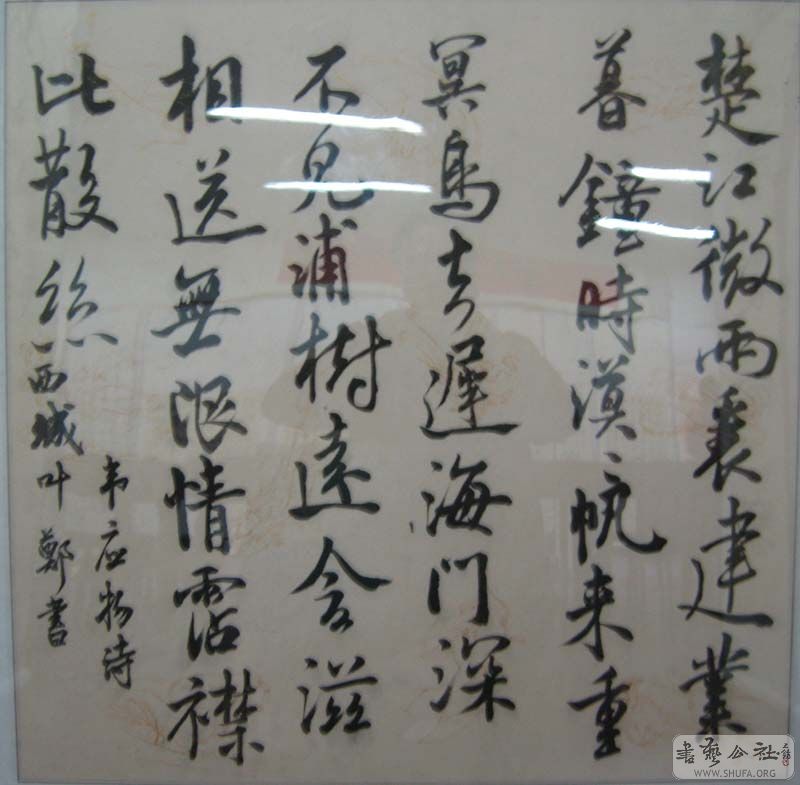 楚江微雨裏建業
暮鐘時漠々帆来重
冥鳥去遲海門深
不见浦樹遠含滋
相送無限情霑襟
比散絲
韦应物诗
西城叶鄭書
書藝公社
WWW.SHUFA.ORG